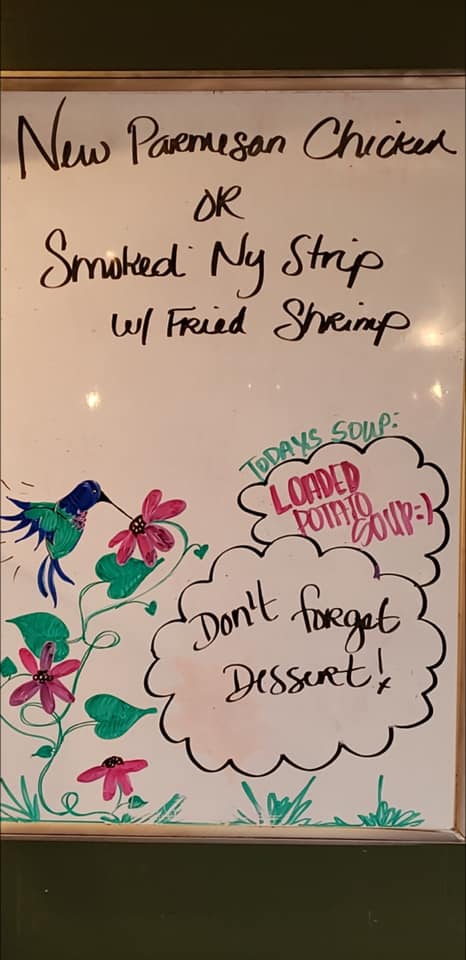 New Parmesan Chicken
OR
Smoked Ny Strip
w/ Fried Shrimp
TODAYS SOUP:
LOADED
POTATO
SOUP=)
Don't forget
Dessert!